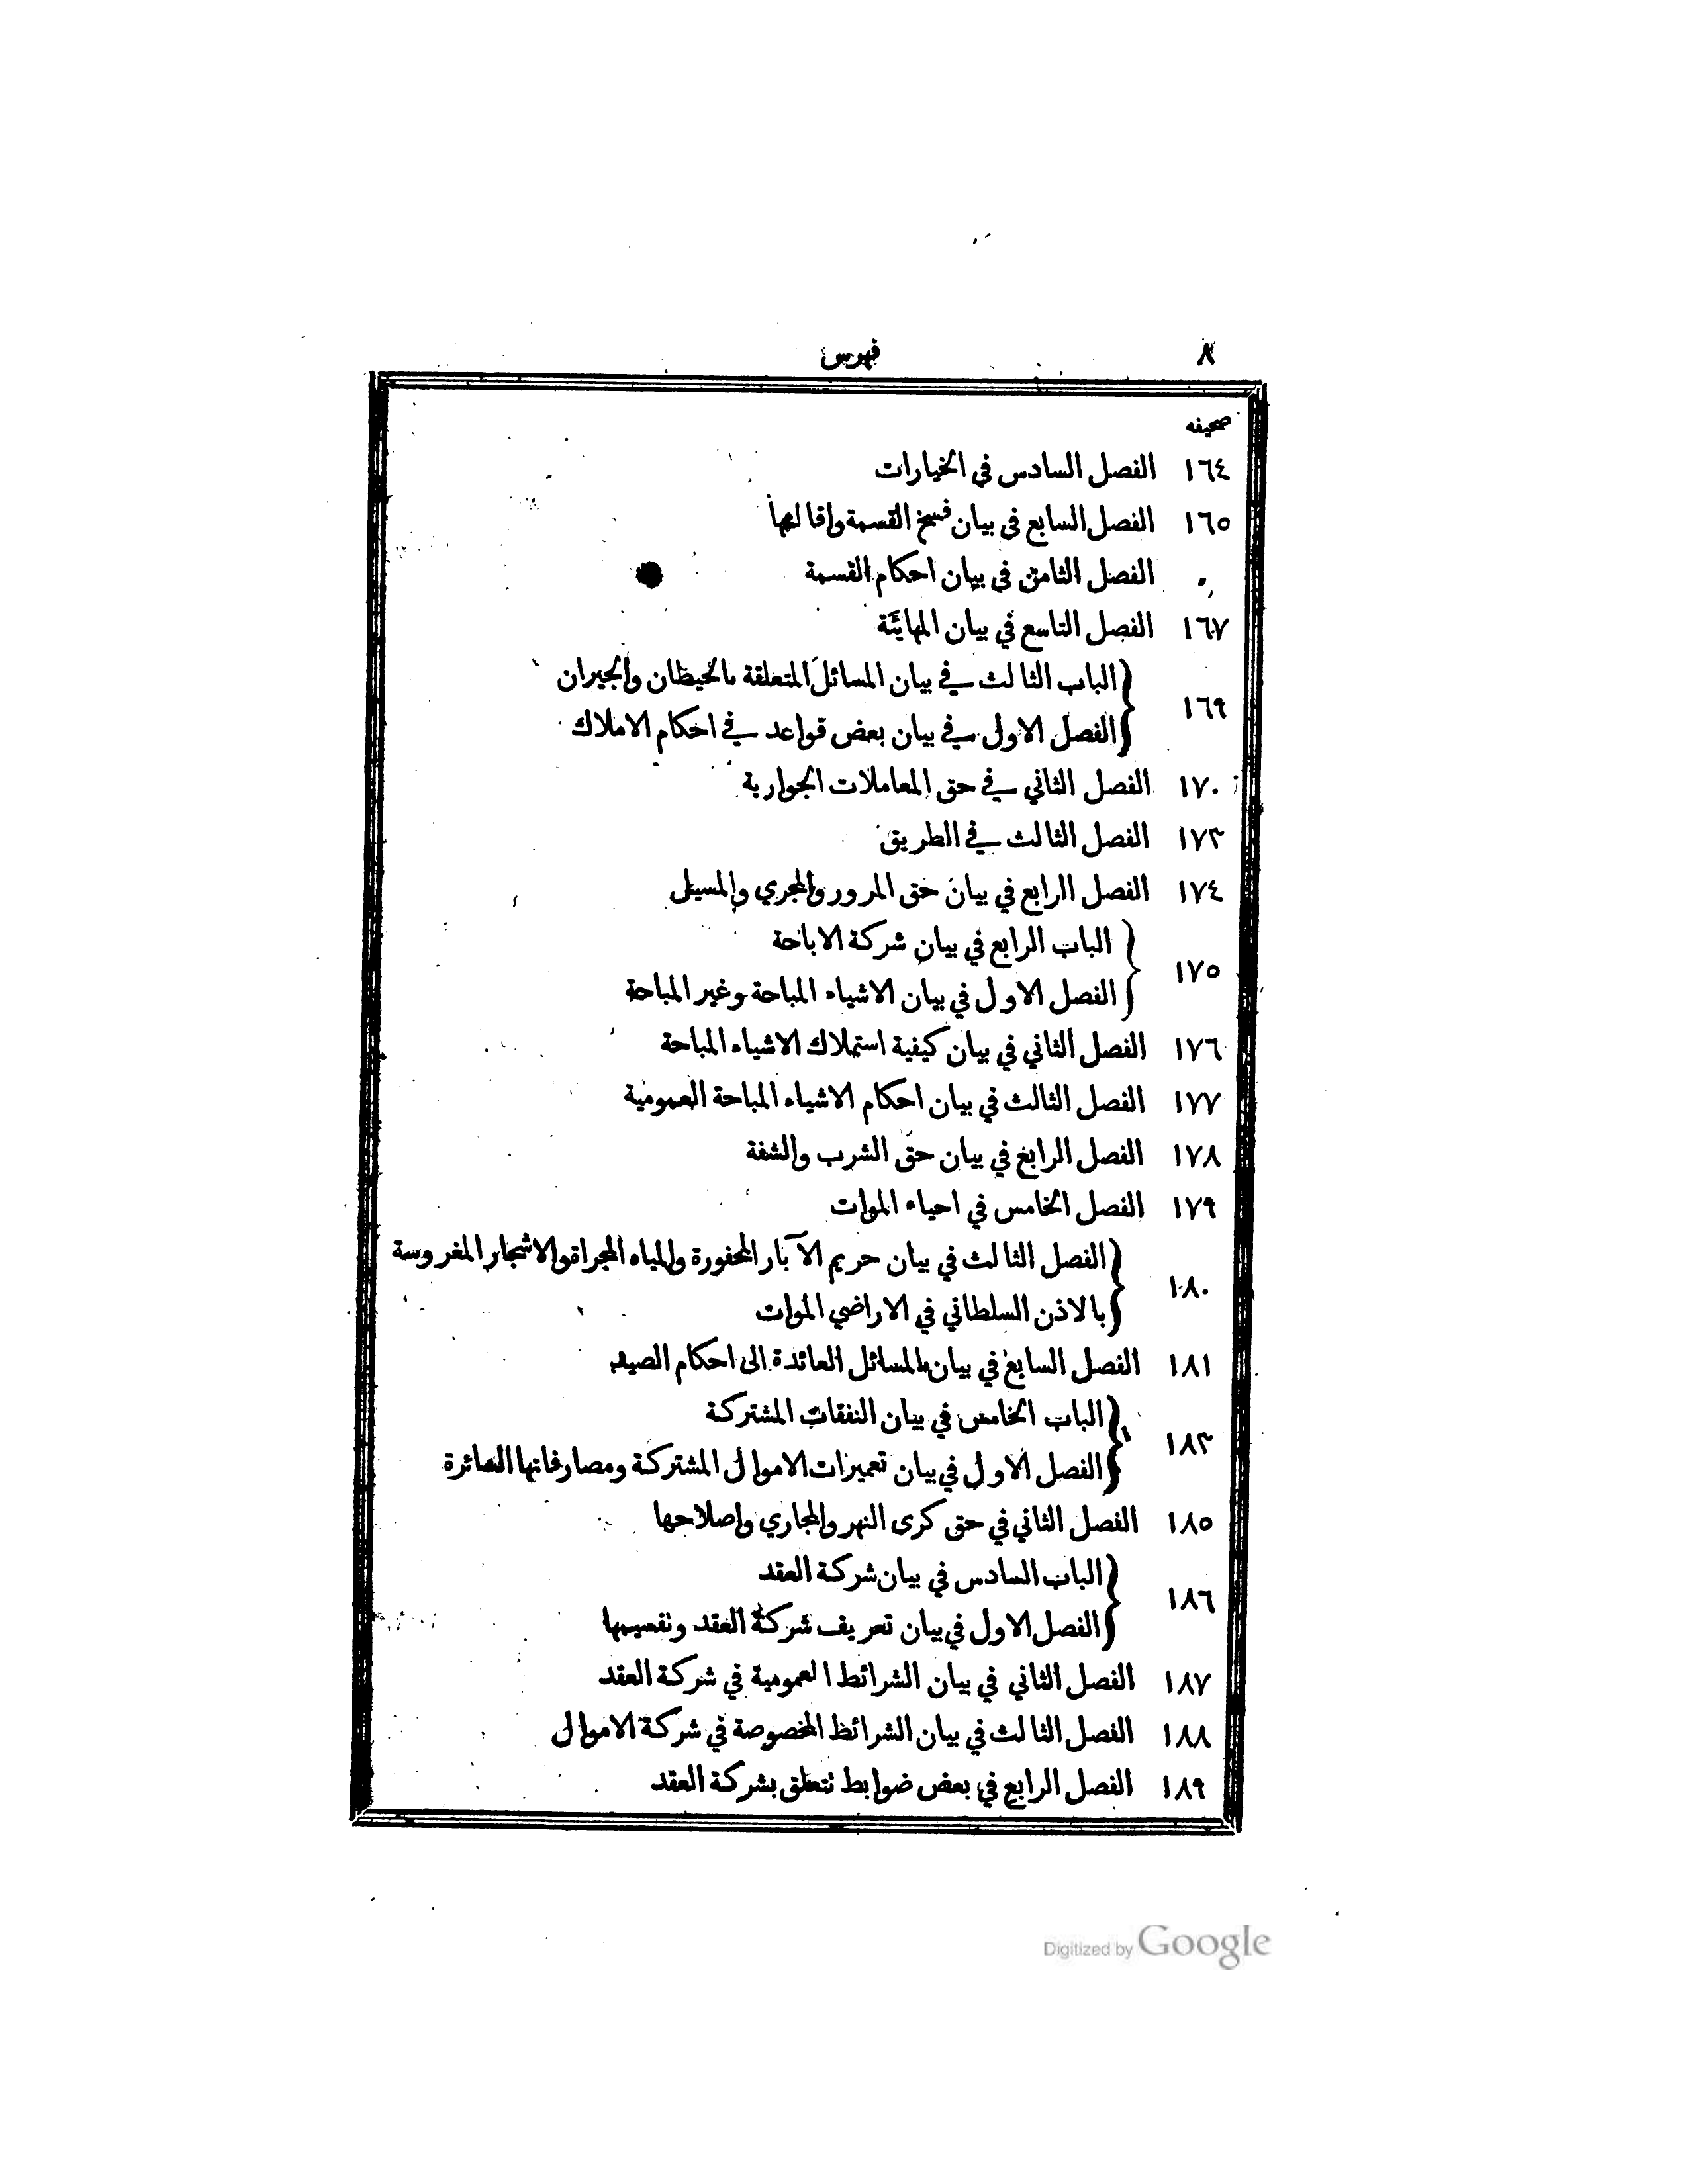 ٨ فهرس
صحيفه
١٦٤ الفصل السادس في الخيارات
١٦٥ الفصل السابع في بيان فسخ القسمة واقالتها
الفصل الثامن في بيان احكام القسمة
١٦٧ الفصل التاسع في بيان المهايئة
الباب الثالث في بيان المسائل المتعلقة بالحيطان والجيران
١٦٩
الفصل الاول في بيان بعض قواعد في احكام الاملاك
١٧٠ الفصل الثاني في حق المعاملات الجوارية
١٧٣ الفصل الثالث في الطريق
١٧٤ الفصل الرابع في بيان حق المرور والمجري والمسيل
الباب الرابع في بيان شركة الاباحة
١٧٥
الفصل الاول في بيان الاشياء المباحة وغير المباحة
١٧٦ الفصل الثاني في بيان كيفية استملاك الاشياء المباحة
١٧٧ الفصل الثالث في بيان احكام الاشياء المباحة العمومية
١٧٨ الفصل الرابع في بيان حق الشرب والشفة
١٧٩ الفصل الخامس في احياء الموات
الفصل الثالث في بيان حريم الآبار المحفورة والمياه المجراة والاشجار المغروسة
١٨٠
بالاذن السلطاني في الاراضي الموات
١٨١ الفصل السابع في بيان المسائل العائدة الى احكام الصيد
الباب الخامس في بيان النفقات المشتركة
١٨٣
الفصل الاول في بيان تعميرات الاموال المشتركة ومصارفاتها السائرة
١٨٥ الفصل الثاني في حق كرى النهر والمجاري واصلاحها
الباب السادس في بيان شركة العقد
١٨٦
الفصل الاول في بيان تعريف شركة العقد وتقسيمها
١٨٧ الفصل الثاني في بيان الشرائط العمومية في شركة العقد
١٨٨ الفصل الثالث في بيان الشرائط المخصوصة في شركة الاموال
١٨٩ الفصل الرابع في بعض ضوابط تتعلق بشركة العقد
Digitized by Google